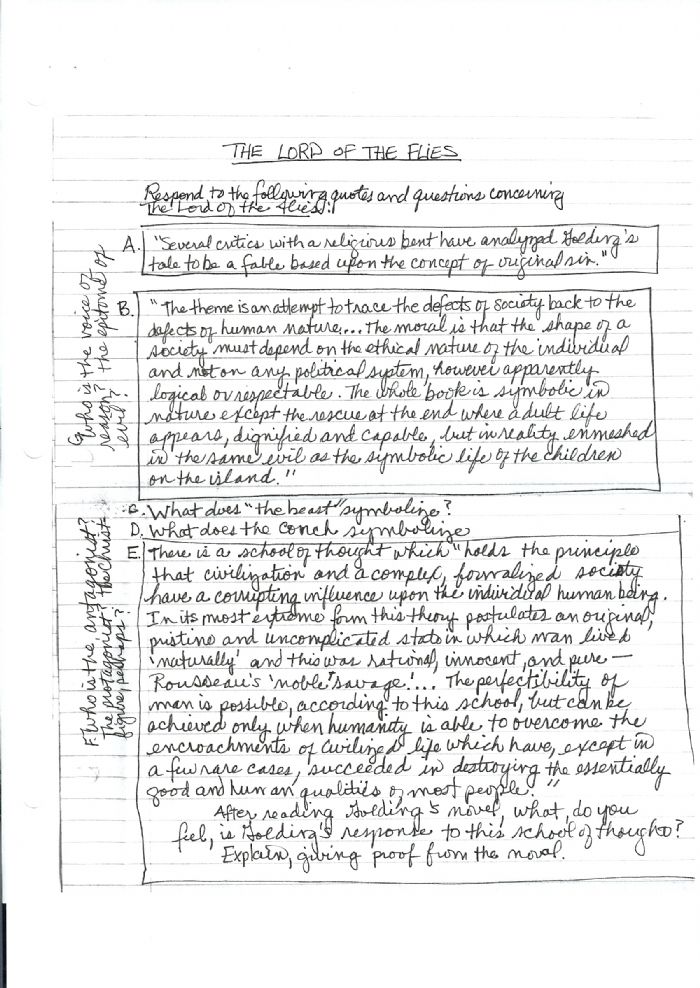 THE LORD OF THE FLIES
Respond to the following quotes and questions concerning
The Lord of the Flies:
A. "Several critics with a religious bent have analyzed Golding's
tale to be a fable based upon the concept of original sin."
B. "The theme is an attempt to trace the defects of society back to the
defects of human nature.... The moral is that the shape of a
society must depend on the ethical nature of the individual
and not on any political system, however apparently
logical or respectable. The whole book is symbolic in
nature except the rescue at the end where adult life
appears, dignified and capable, but in reality enmeshed
in the same evil as the symbolic life of the children
on the island."
C. What does "the beast" symbolize?
D. What does the conch symbolize
E. There is a school of thought which "holds the principle
that civilization and a complex, formalized society
have a corrupting influence upon the individual human being.
In its most extreme form this theory postulates an original,
pristine and uncomplicated state in which man lived
'naturally' and this was rational, innocent, and pure —
Rousseau's 'noble savage'.... The perfectibility of
man is possible, according to this school, but can be
achieved only when humanity is able to overcome the
encroachments of civilized life which have, except in
a few rare cases, succeeded in destroying the essentially
good and human qualities of most people."
After reading Golding's novel, what, do you
feel, is Golding's response to this school of thought?
Explain, giving proof from the novel.
F. Who is the antagonist?
The protagonist? The Christ
figure, perhaps?
G. Who is the voice of
reason? the epitome of
evil?